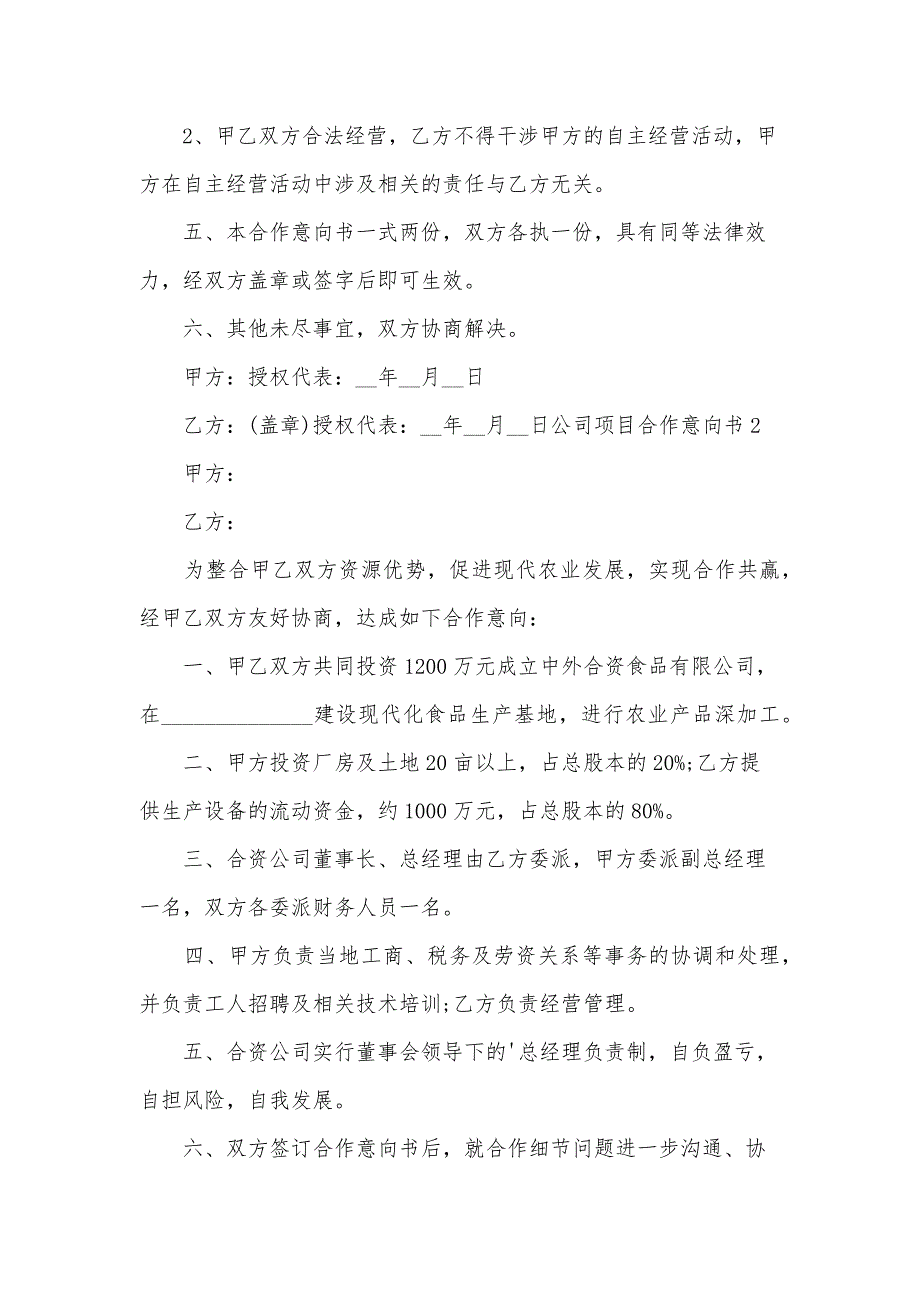 2、甲乙双方合法经营，乙方不得干涉甲方的自主经营活动，甲
方在自主经营活动中涉及相关的责任与乙方无关。
五、本合作意向书一式两份，双方各执一份，具有同等法律效
力，经双方盖章或签字后即可生效。
六、其他未尽事宜，双方协商解决。
甲方：授权代表：__年__月__日
乙方：(盖章)授权代表：__年__月__日公司项目合作意向书2
甲方：
乙方：
为整合甲乙双方资源优势，促进现代农业发展，实现合作共赢，
经甲乙双方友好协商，达成如下合作意向：
一、甲乙双方共同投资1200万元成立中外合资食品有限公司，
在______________建设现代化食品生产基地，进行农业产品深加工。
二、甲方投资厂房及土地20亩以上，占总股本的20%;乙方提
供生产设备的流动资金，约1000万元，占总股本的80%。
三、合资公司董事长、总经理由乙方委派，甲方委派副总经理
一名，双方各委派财务人员一名。
四、甲方负责当地工商、税务及劳资关系等事务的协调和处理，
并负责工人招聘及相关技术培训;乙方负责经营管理。
五、合资公司实行董事会领导下的'总经理负责制，自负盈亏，
自担风险，自我发展。
六、双方签订合作意向书后，就合作细节问题进一步沟通、协